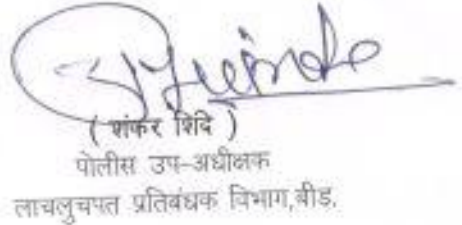 ( शंकर शिंदे )
पोलीस उप-अधीक्षक
लाचलुचपत प्रतिबंधक विभाग,बीड.